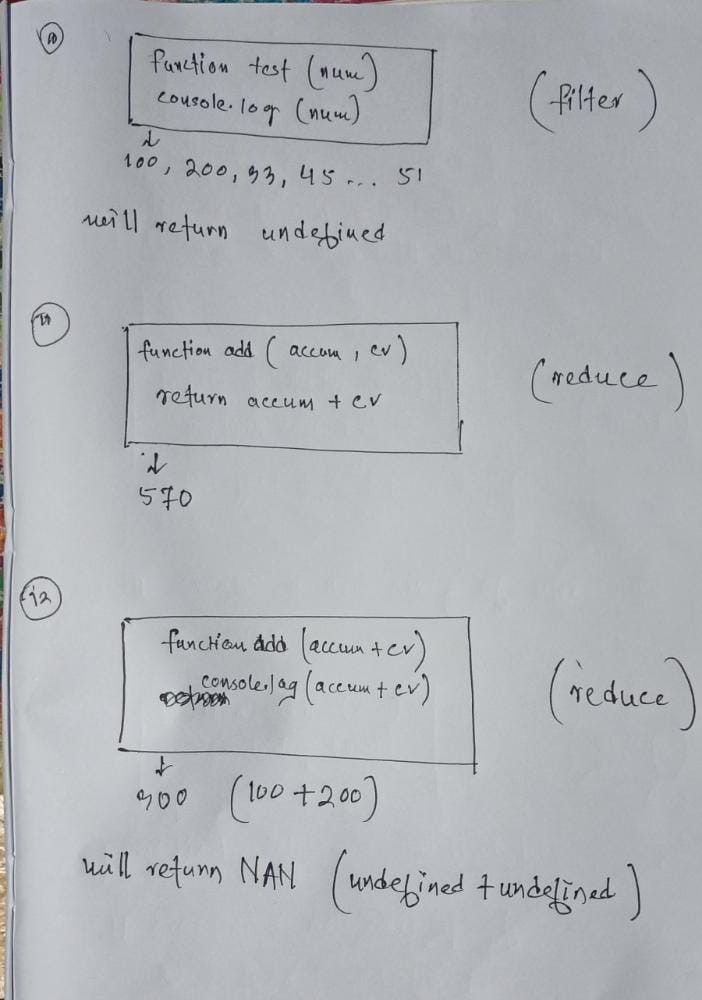 10
function test (num)
console.log (num)
(filter)
100, 200, 33, 45 ... 51
will return undefined
11
function add ( accum , cv )
return accum + cv
(reduce)
570
12
function add (accum + cv)
console.log (accum + cv)
(reduce)
300 (100 + 200)
will return NAN (undefined + undefined)